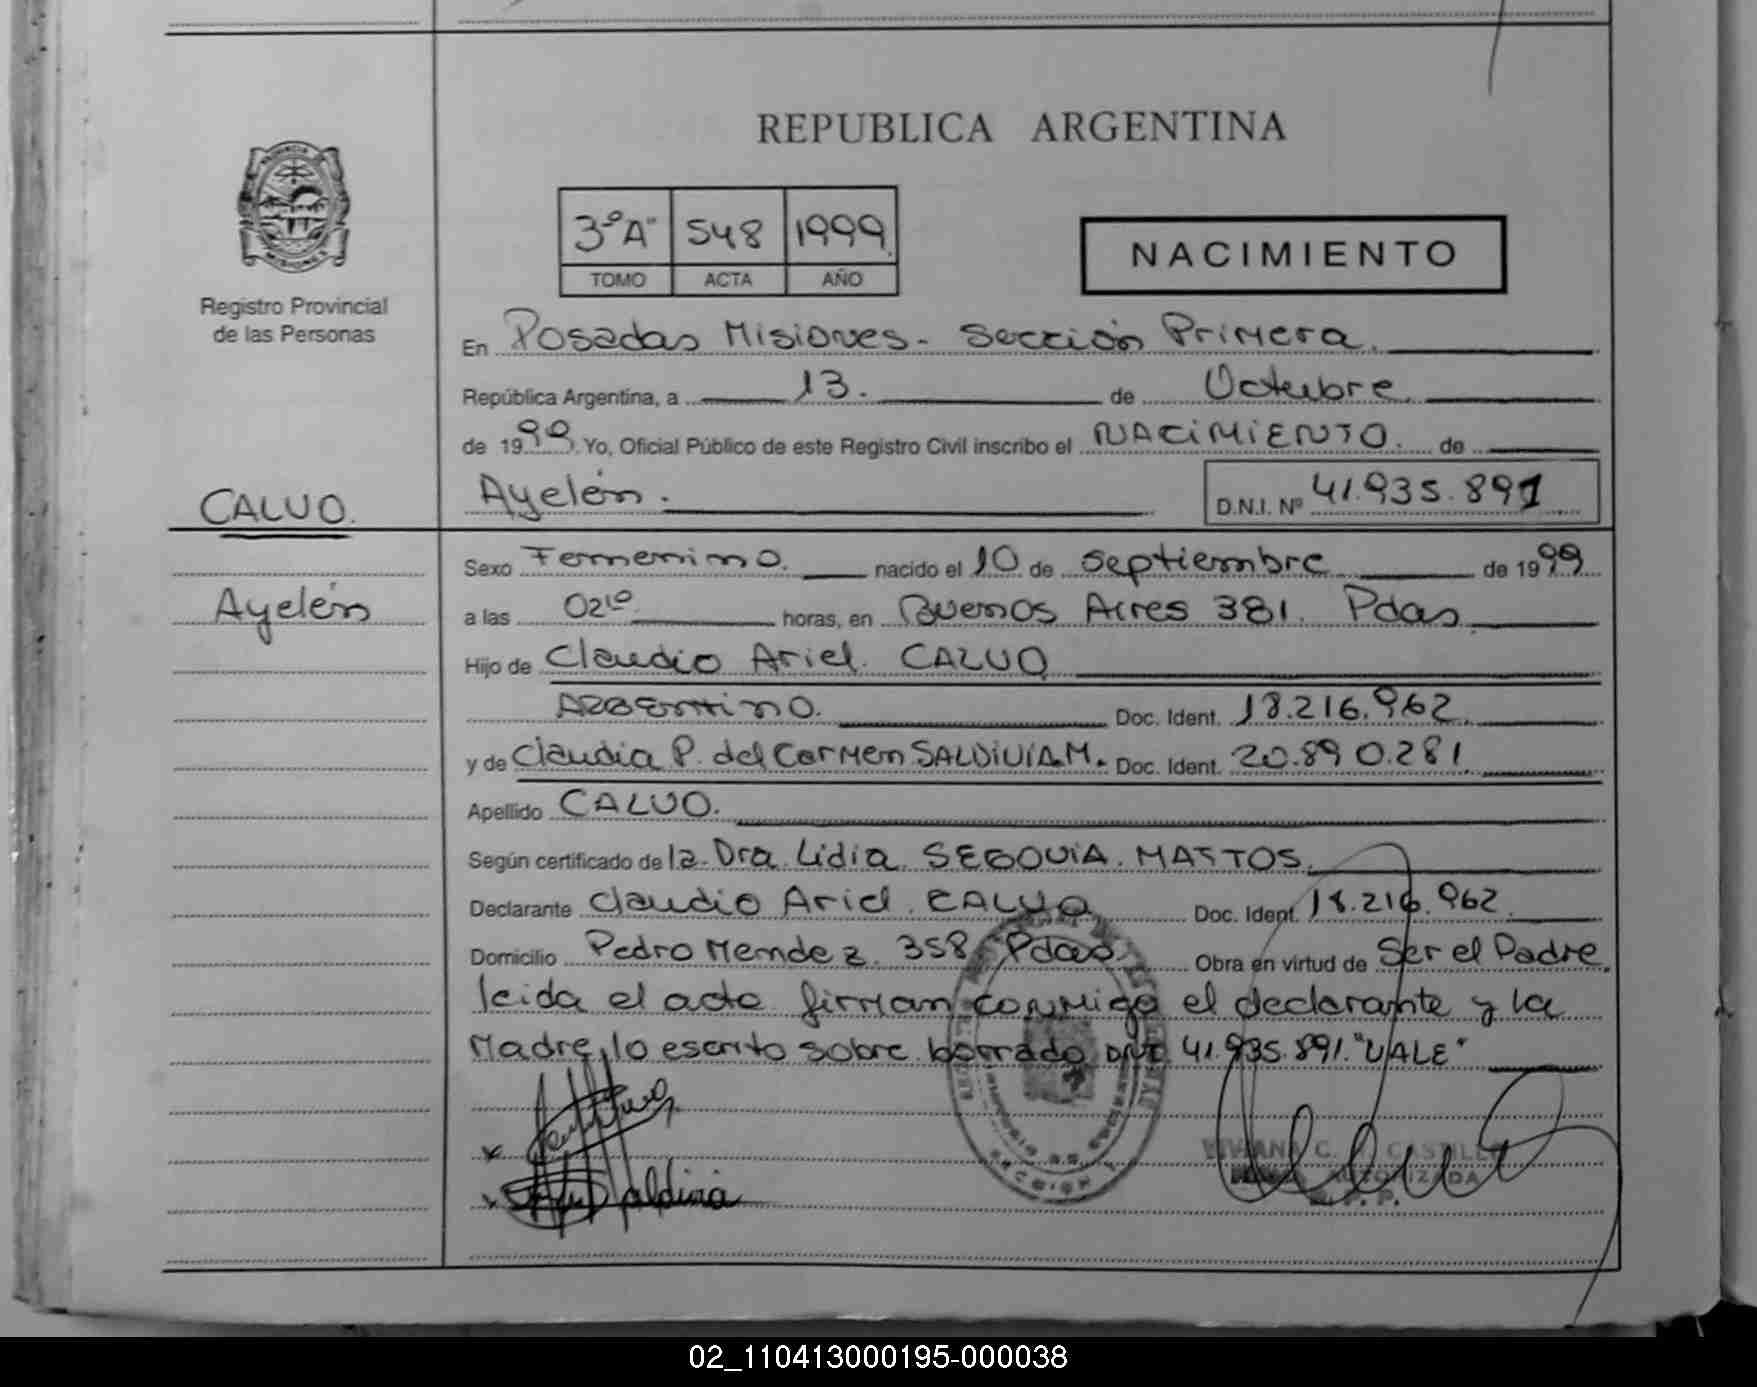 REPUBLICA ARGENTINA
3ºA" 548 1999
TOMO ACTA AÑO
NACIMIENTO
Registro Provincial
de las Personas
En Posadas Misiones - Sección Primera.
República Argentina, a 13. de Octubre.
de 1999. Yo, Oficial Público de este Registro Civil inscribo el NACIMIENTO. de
CALVO.
Ayelén.
D.N.I. Nº 41.935.891
Sexo Femenino. nacido el 10 de Septiembre de 1999
Ayelén
a las 02¹⁰ horas, en Buenos Aires 381. Pdas.
Hijo de Claudio Ariel. CALVO
ARGENTINO. Doc. Ident. 18.216.962.
y de Claudia P. del Carmen SALDIVIA.M. Doc. Ident. 20.890.281.
Apellido CALVO.
Según certificado de la Dra. Lidia. SEGOVIA. MASTOS.
Declarante Claudio Ariel. CALVO Doc. Ident. 18.216.962.
Domicilio Pedro Mendez. 358 Pdas. Obra en virtud de Ser el Padre.
leida el acta firman conmigo el declarante y la
Madre, lo escrito sobre borrado DNI 41.935.891. "VALE"
Saldivia
VIVIANA C. CASTILLO
AUTORIZADA
02_110413000195-000038